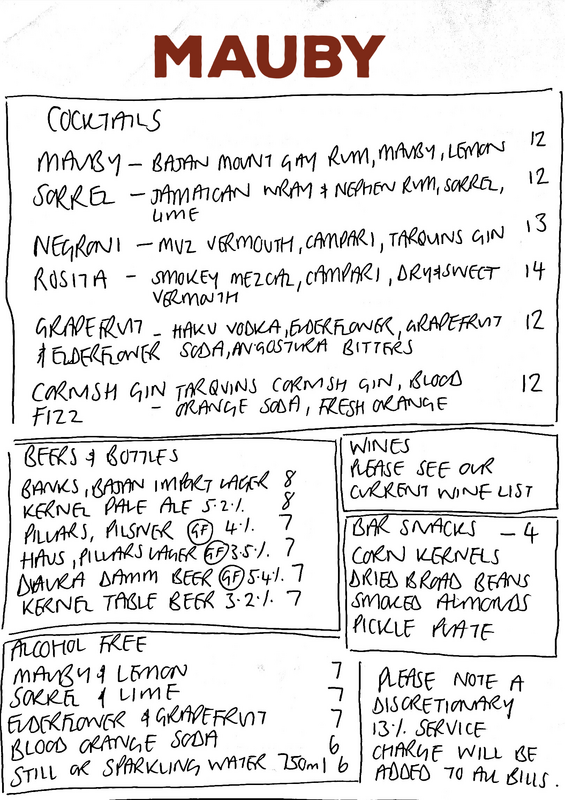 MAUBY
COCKTAILS
MAUBY - BAJAN MOUNT GAY RUM, MAUBY, LEMON 12
SORREL - JAMAICAN WRAY & NEPHEN RUM, SORREL, 12
LIME
NEGRONI - MVZ VERMOUTH, CAMPARI, TARQUINS GIN 13
ROSITA - SMOKEY MEZCAL, CAMPARI, DRY & SWEET 14
VERMOUTH
GRAPEFRUIT - HAKU VODKA, ELDERFLOWER, GRAPEFRUIT 12
& ELDERFLOWER SODA, ANGOSTURA BITTERS
CORNISH GIN TARQUINS CORNISH GIN, BLOOD 12
FIZZ - ORANGE SODA, FRESH ORANGE
BEERS & BOTTLES
BANKS, BAJAN IMPORT LAGER 8
KERNEL PALE ALE 5.2% 8
PILLARS, PILSNER GF 4% 7
HAUS, PILLARS LAGER GF 3.5% 7
DAURA DAMM BEER GF 5.4% 7
KERNEL TABLE BEER 3.2% 7
WINES
PLEASE SEE OUR
CURRENT WINE LIST
BAR SNACKS - 4
CORN KERNELS
DRIED BROAD BEANS
SMOKED ALMONDS
PICKLE PLATE
ALCOHOL FREE
MAUBY & LEMON 7
SORREL & LIME 7
ELDERFLOWER & GRAPEFRUIT 7
BLOOD ORANGE SODA 6
STILL OR SPARKLING WATER 750ml 6
PLEASE NOTE A
DISCRETIONARY
13% SERVICE
CHARGE WILL BE
ADDED TO ALL BILLS.